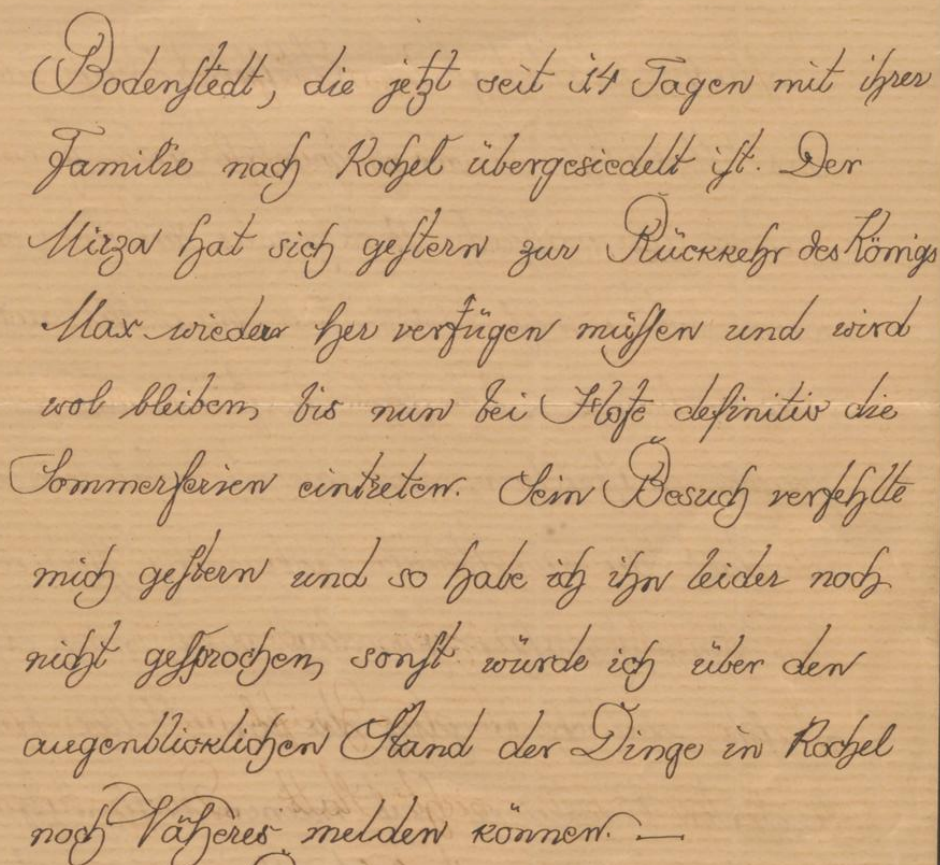 Bodenstedt, die jetzt seit 14 Tagen mit ihrer
Familie nach Kochel übergesiedelt ist. Der
Mirza hat sich gestern zur Rückkehr des Königs
Max wieder her verfügen müssen und wird
wol bleiben, bis nun bei Hofe definitiv die
Sommerferien eintreten. Sein Besuch verfehlte
mich gestern und so habe ich ihn leider noch
nicht gesprochen, sonst würde ich über den
augenblicklichen Stand der Dinge in Kochel
noch Näheres melden können. —